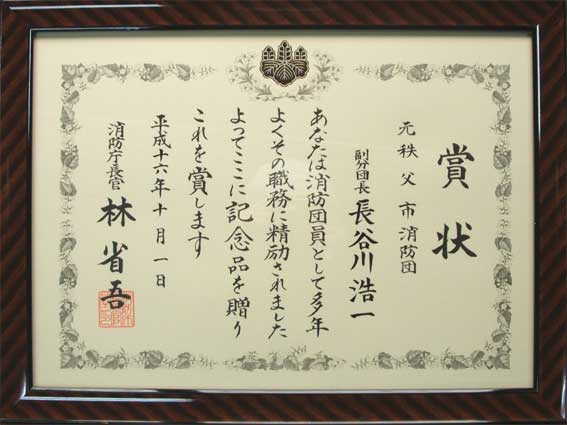 賞状
元秩父市消防団
副分団長 長谷川浩一
あなたは消防団員として多年
よくその職務に精励されました
よってここに記念品を贈り
これを賞します
平成十六年十月一日
消防庁長官 林省吾